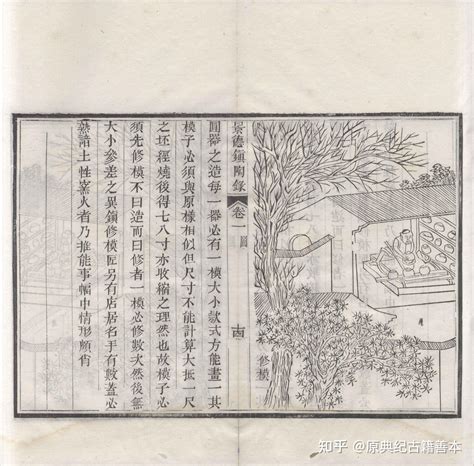 修模
景德鎮陶錄 卷一 圖 十四
圓器之造每一器必有一模大小款式方能畫一其
模子必須與原樣相似但尺寸不能計算大抵一尺
之坯經燒後得七八寸亦收縮之理然也故模子必
須先修模不曰造而曰修者一模必修數次然後無
大小參差之異鎮修模匠另有店居名手有數蓋必
熟諳土性窯火者乃推能事幅中情形頗肖
知乎 @原典纪古籍善本